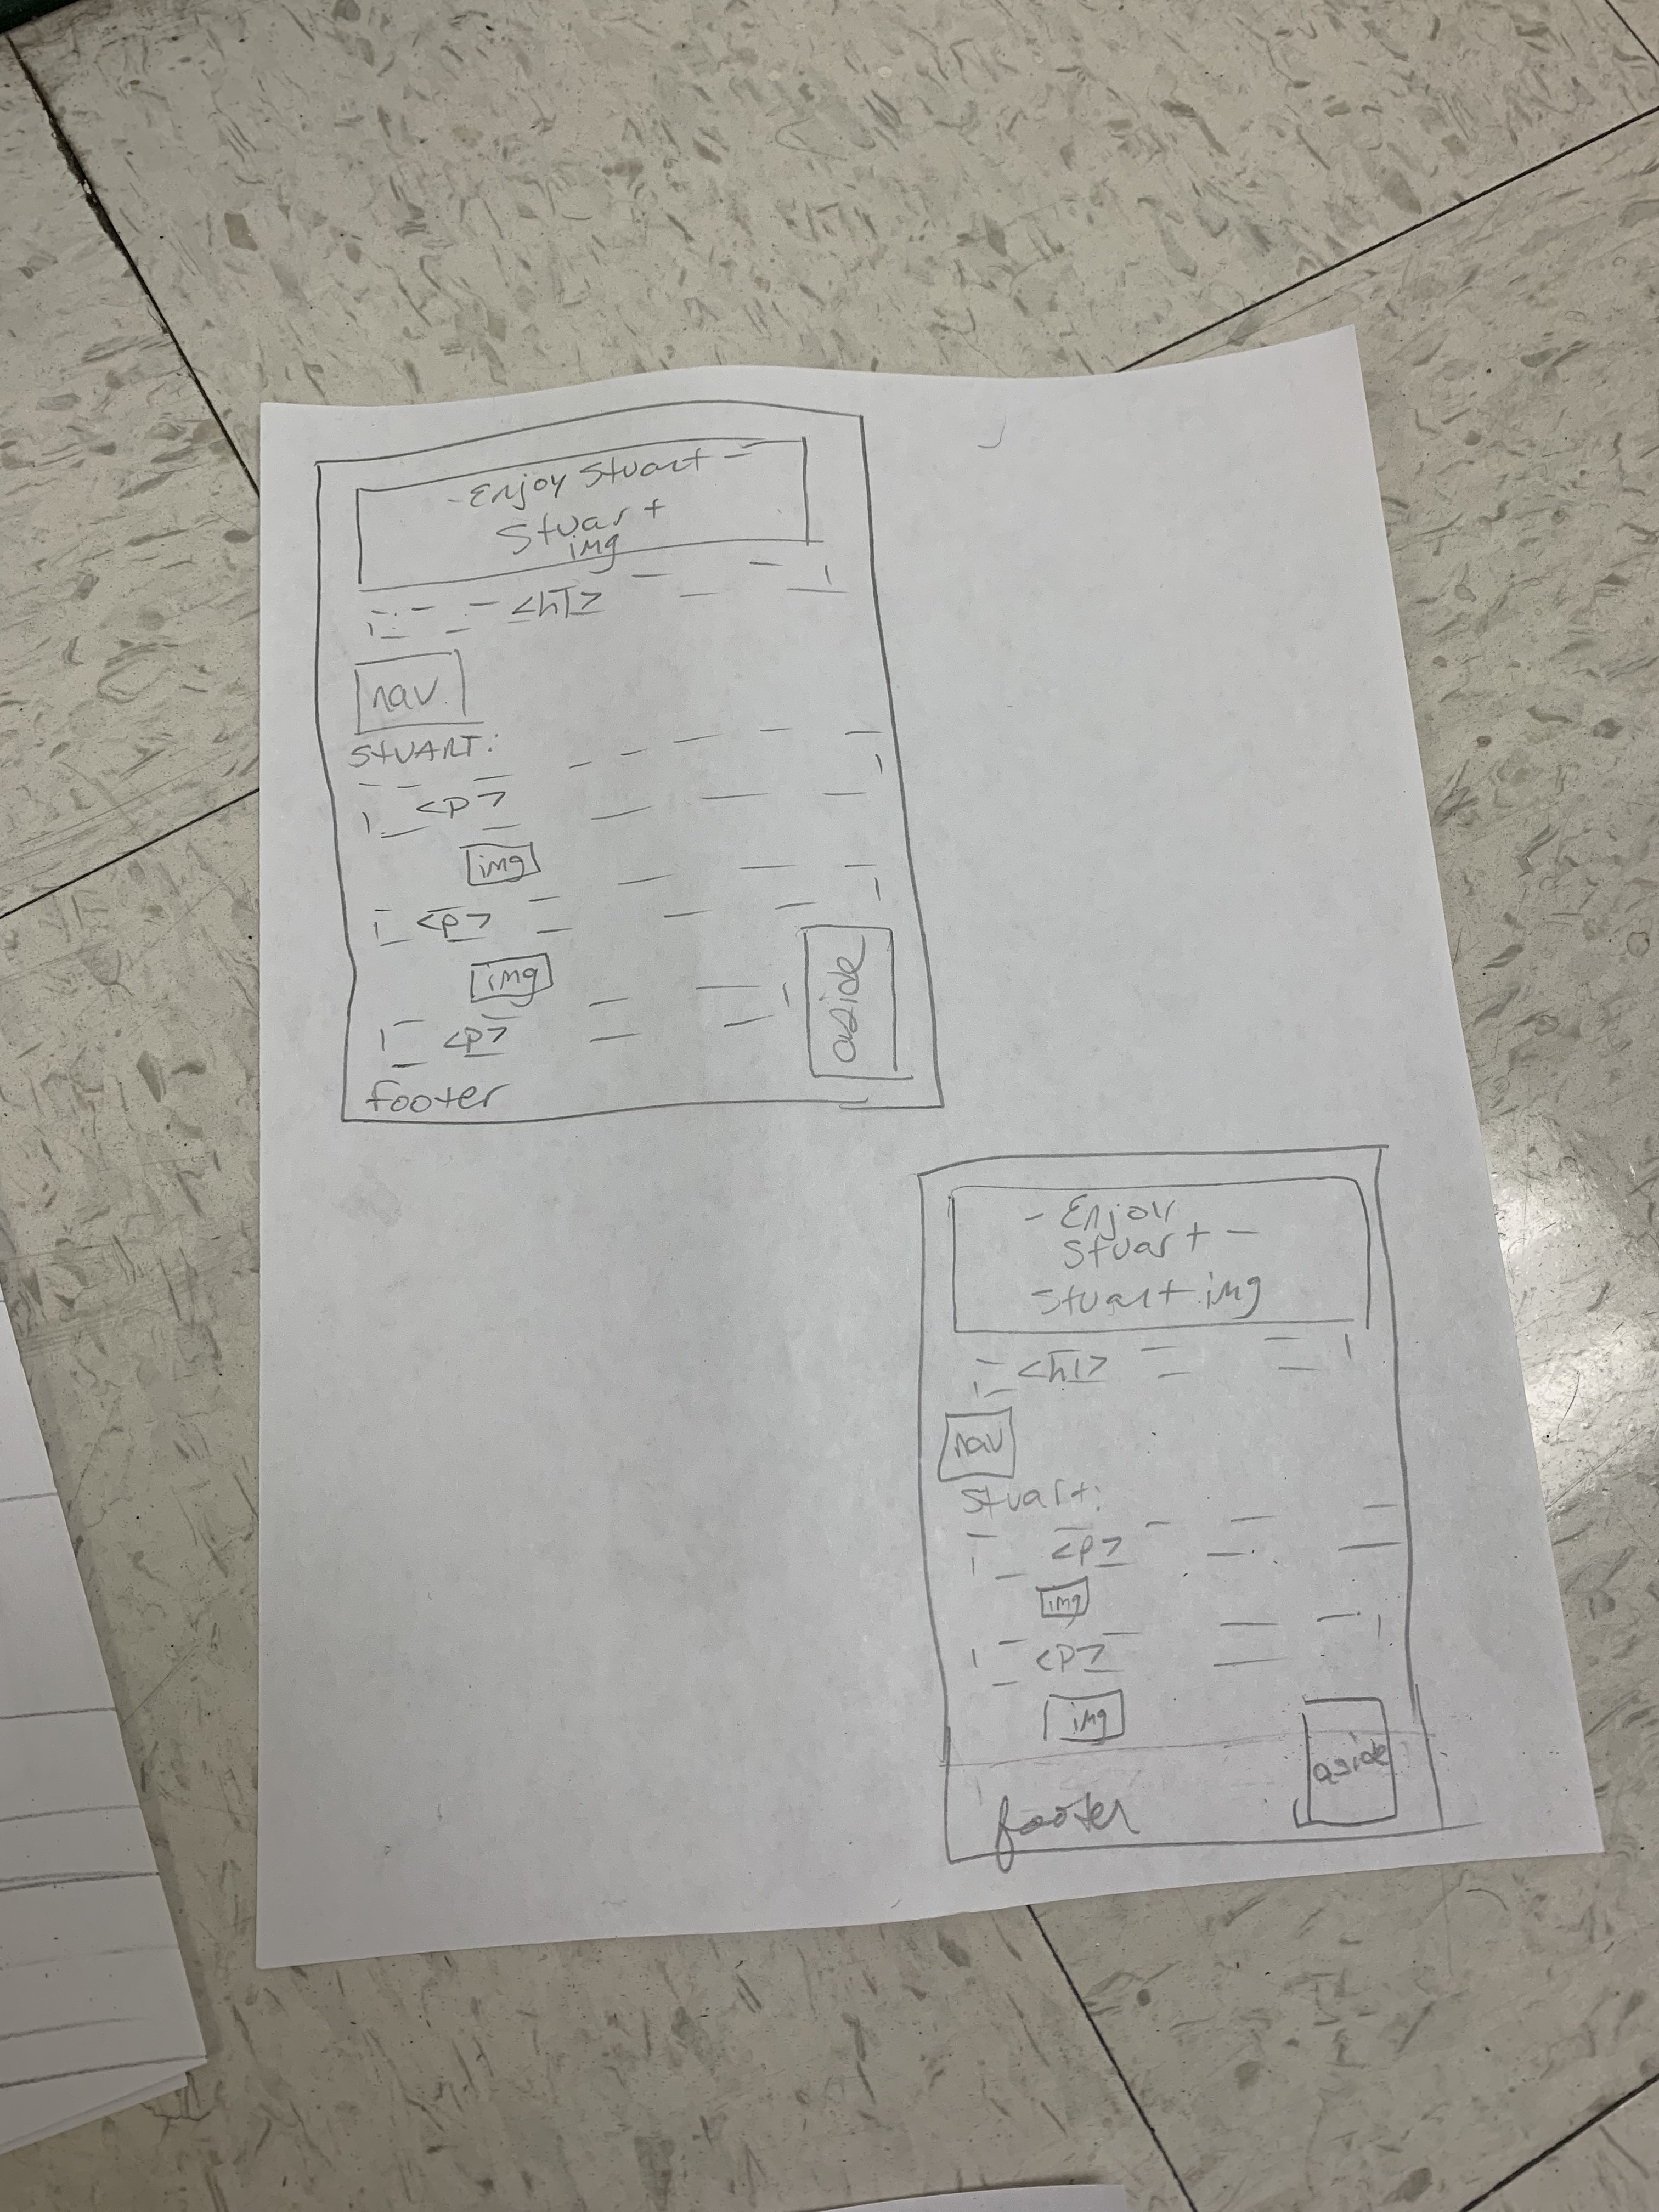 - Enjoy Stuart -
Stuart
img
<h1>
nav
STUART:
<p>
img
<p>
img
<p>
aside
footer
- Enjoy
Stuart -
Stuart img
<h1>
nav
Stuart:
<p>
img
<p>
img
aside
footer